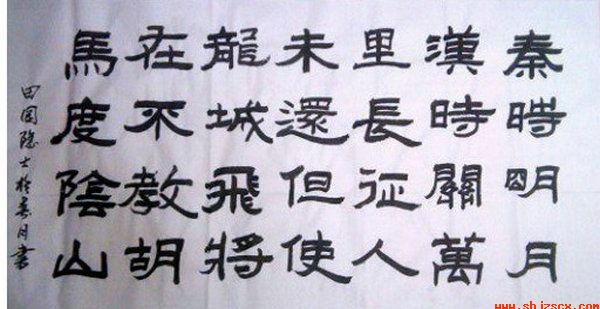 秦時明月
漢時關萬
里長征人
未還但使
龍城飛將
在不教胡
馬度陰山
田園隐士於春月書
www.shjzscx.com